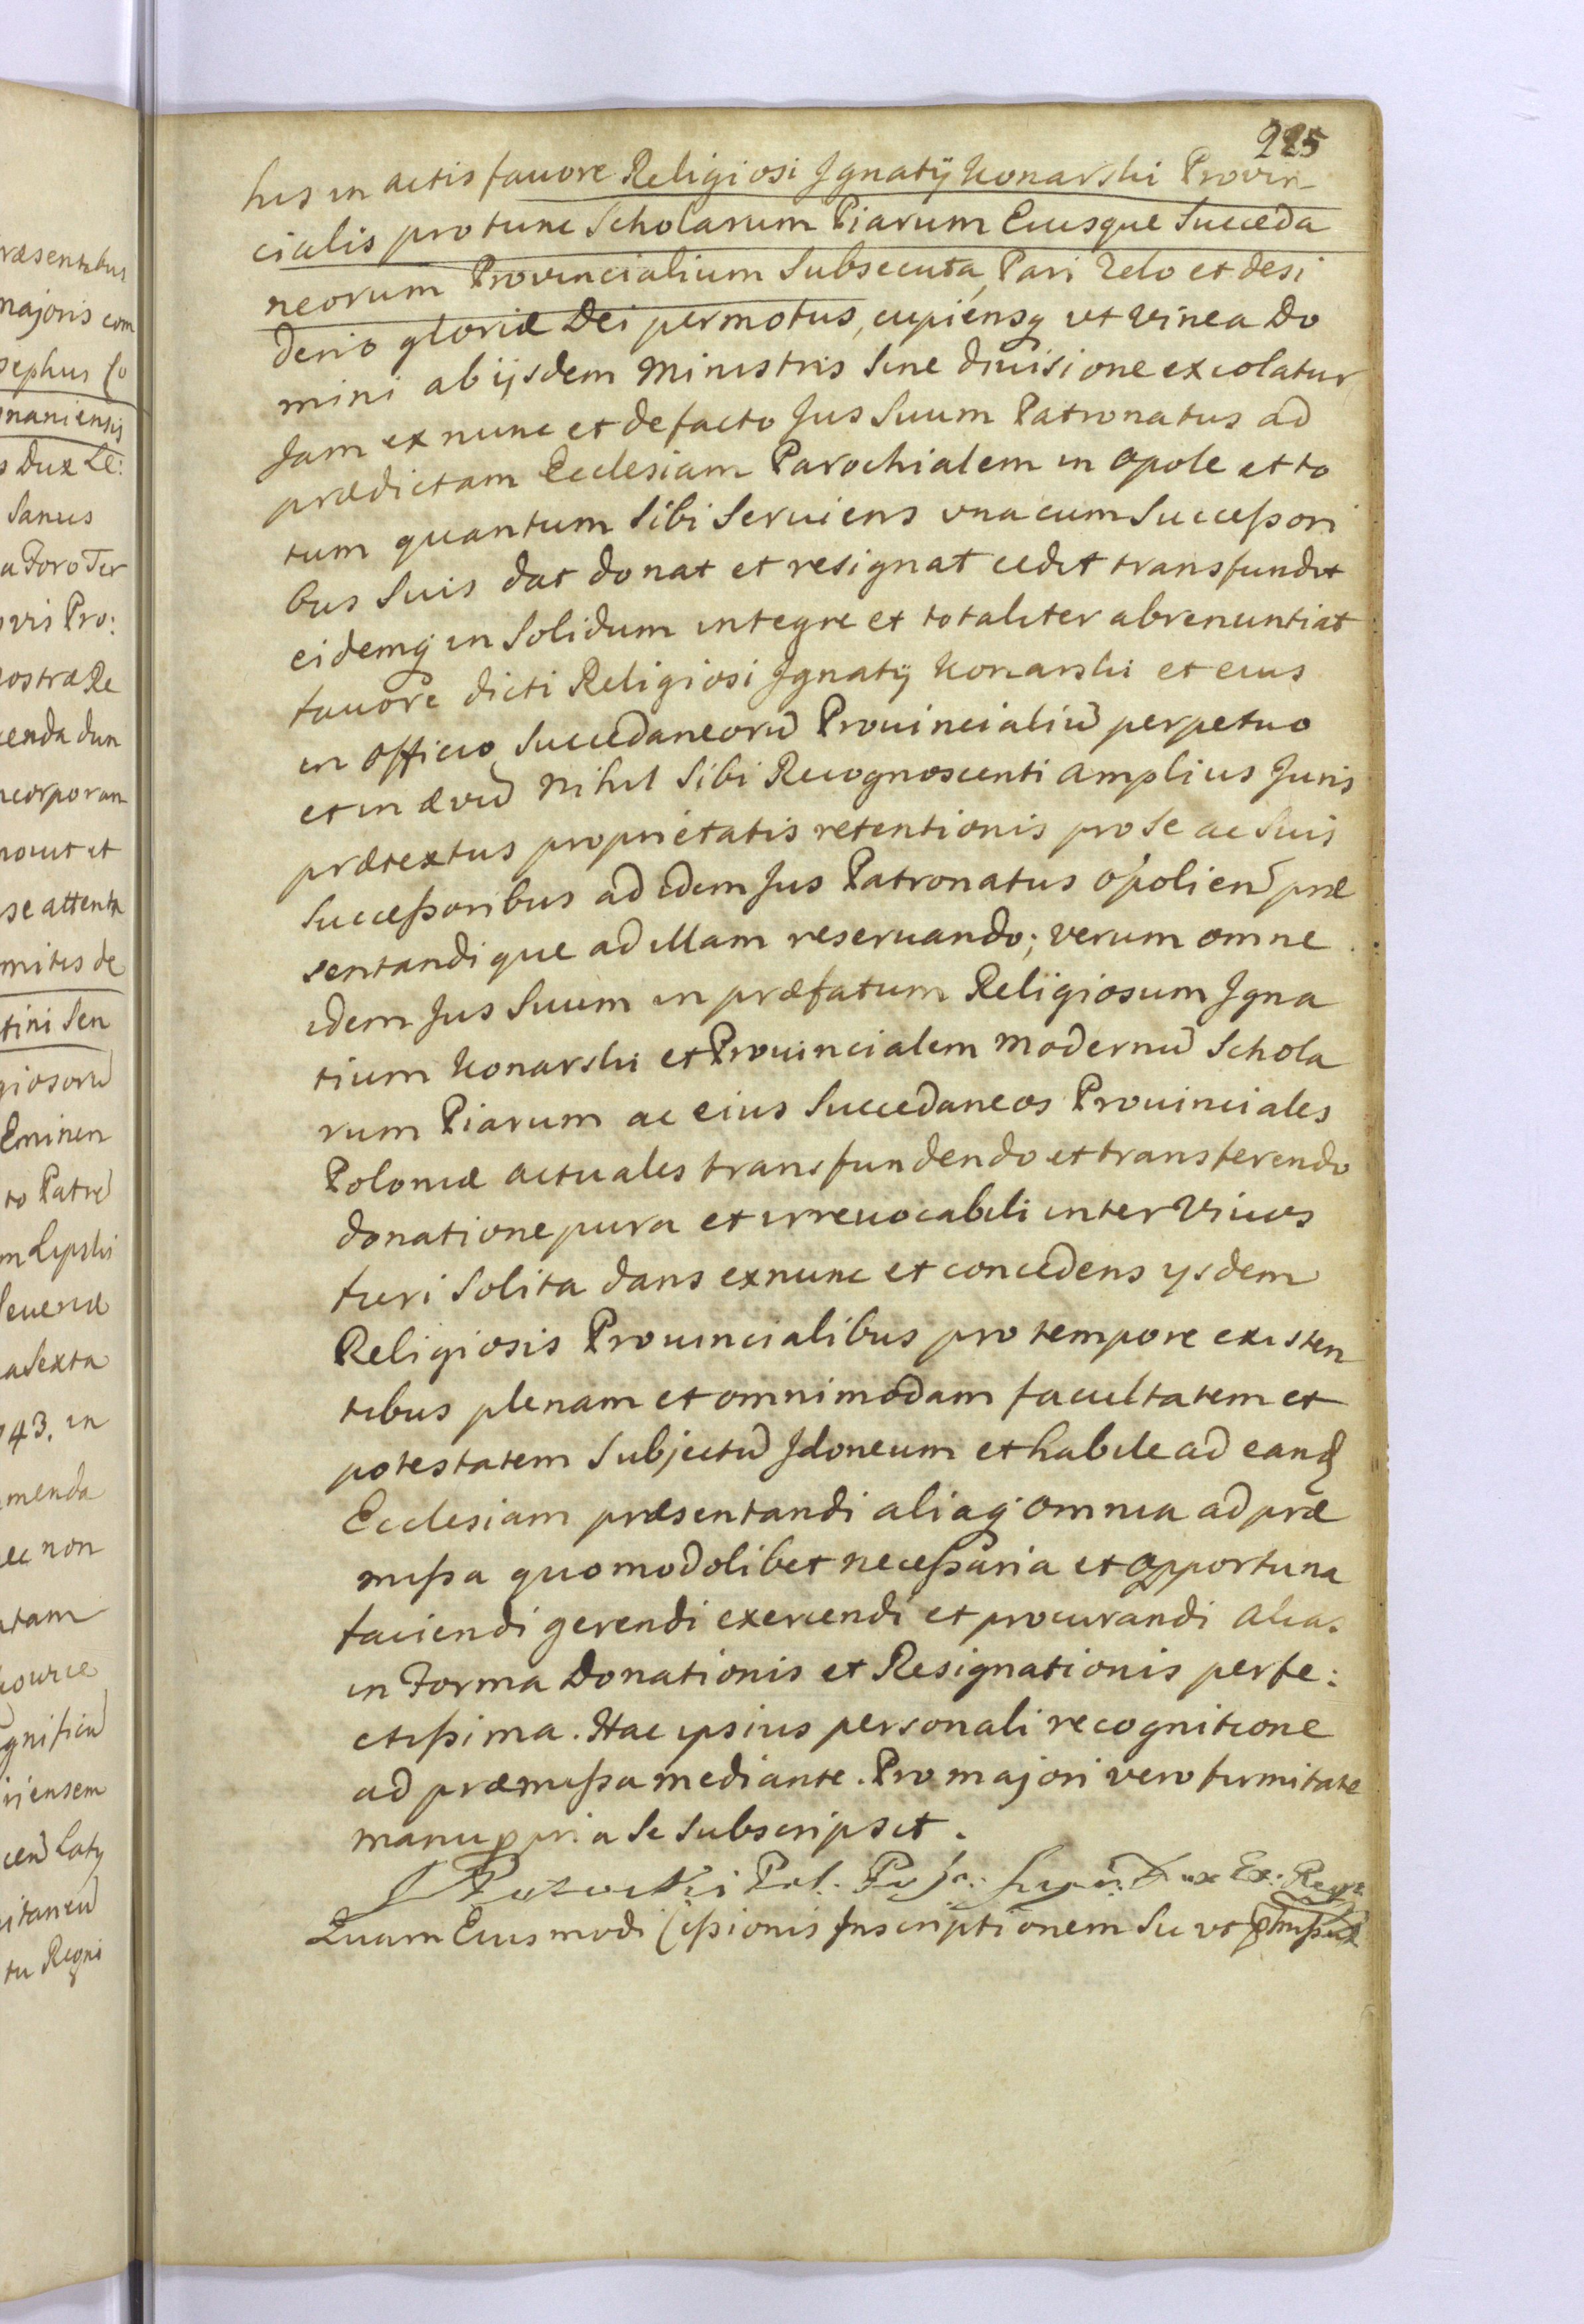 225
his in actis favore Religiosi Jgnatÿ Konarski Provin
cialis pro tunc Scholarum Piarum Eiusque Succeda
neorum Provincialium Subsecuta, Pari Zelo et desi
derio gloriæ Dei permotus, cupiensq vt vinea Do
mini ab ijsdem Ministris Sine diuisione excolatur
Jam ex nunc et defacto Jus Suum Patronatus ad
prædictam Ecclesiam Parochialem in Opole et to
tum quantum Sibi Serviens vna cum Succeßori
bus Suis dat donat et resignat cedit transfundit
eidemq in Solidum integre et totaliter abrenuntiat
favore dicti Religiosi Jgnatÿ Konarski et eius
in Officio Succedaneorū Prouincialiū perpetuo
et in ævū nihil Sibi Recognoscenti amplius Juris
prætextus proprietatis retentionis pro Se ac Suis
Succeßoribus ad idem Jus Patronatus Opolien̄ præ
sentandique ad illam reseruando; verum omne
idem Jus Suum in præfatum Religiosum Jgna
tium Konarski et Prouincialem modernū Schola
rum Piarum ac eius Succedaneos Prouinciales
Poloniæ actuales transfundendo et transferendo
donatione pura et irreuocabili inter Viuos
fieri Solita dans exnunc et concedens ysdem
Religiosis Prouincialibus pro tempore existen
tibus plenam et omnimodam facultatem et
potestatem Subjectū Jdoneum et habile ad eand
Ecclesiam præsentandi aliaq omnia ad præ
mißa quomodolibet neceßaria et opportuna
faciendi gerendi exercendi et procurandi alias
in Forma Donationis et Resignationis perfe:
ctißima. Hac ipsius personali recognitione
ad præmißa mediante. Pro majori vero firmitate
manu ppria Se Subscripsit.
J Potocki Pal. Dux Ex: Regn:
Quam Eiusmodi Ceßionis Jnscriptionem Sic vt
ræsentibus
majoris com
osephus Co
naniensis
s Dux Le:
Sanus
a Foro Ter
ovis Pro:
nostræ Re
cenda dun
ncorporan
nouit et
se attenta
mitis de
tini Sen
giosorū
Eminen
to Patrē
m Lipski
Seueriæ
a Sexta
743. in
menda
ec non
atam
gnificū
riensem
tu Regni